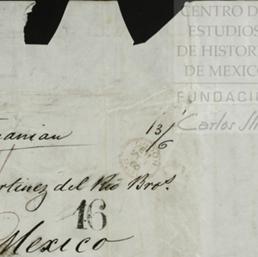 CENTRO D
ESTUDIOS
DE HISTOR
DE MEXICO
FUNDACIÓ
Carlos Sli
13/6
rtinez del Rio Bros.
16
Mexico